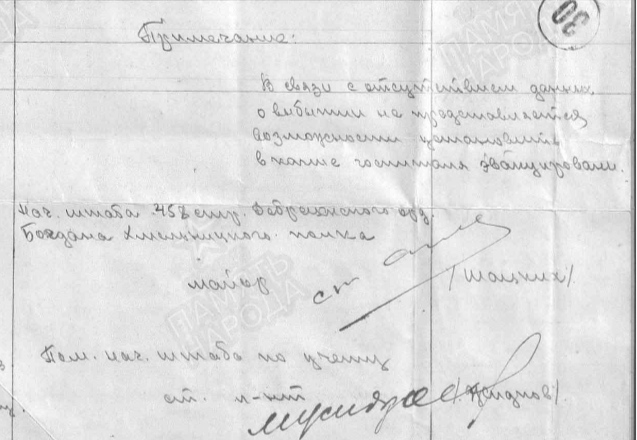 30
Примечание:
В связи с отсутствием данных
о выбытии не представляется
возможности установить
в какие госпиталя эвакуировали.
Нач. штаба 458 стр. Дебреценского орд.
Богдана Хмельницкого полка
майор
Пом. нач. штаба по учету
ст. л-нт
ПАМЯТЬ
НАРОДА